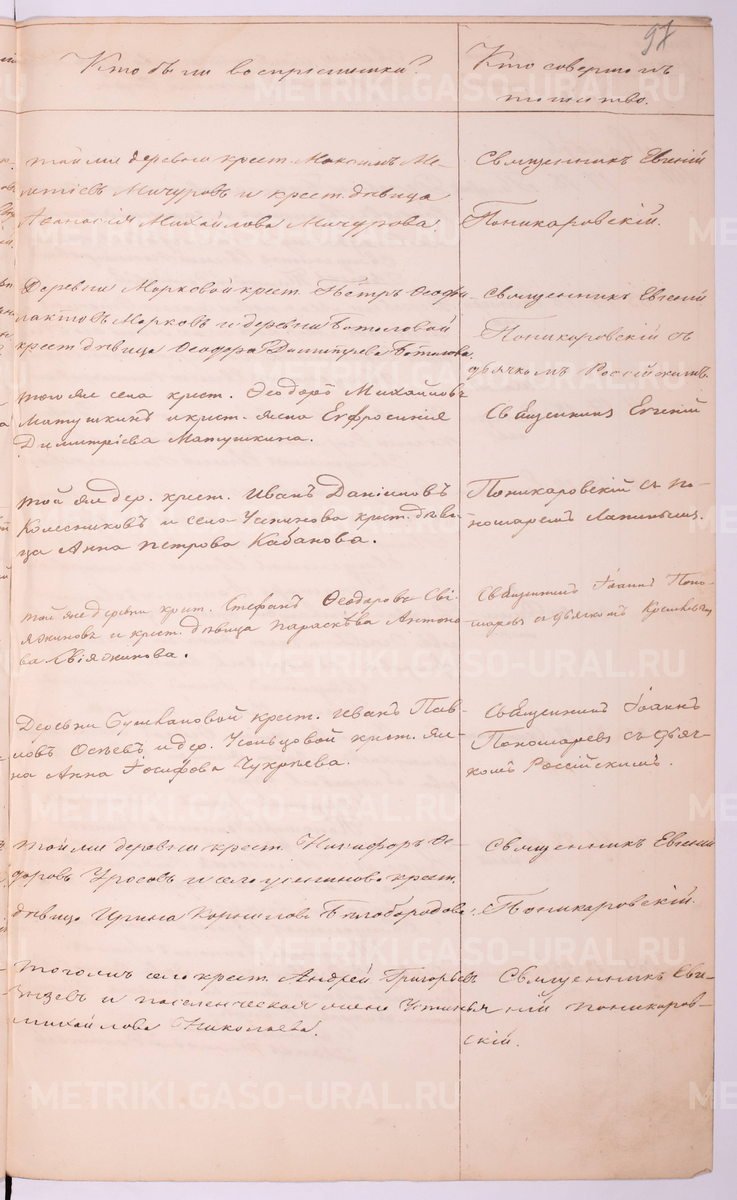 97
Кто были воспріемники?
Кто совершалъ
таинство.
Той же деревни крест. Максимъ Ме-
Мичуровъ и крест. дѣвица
Аѳанасія Михайлова Мичурова
Священникъ Евгеній
Поникаровскій.
Деревни Марковой крест. Петръ Ѳеофи-
лактовъ Марковъ и деревни
крест. дѣвица Ѳеодора Димитріева
Священникъ Евгеній
Поникаровскій съ
дьячкомъ Россійскимъ.
того же села крест. Ѳеодоръ Михайловъ
Матушкинъ и крест. жена Евфросинія
Димитріева Матушкина.
Священникъ Евгеній
той же дер. крест. Иванъ Даніиловъ
Колесниковъ и села крест. дѣви-
ца Анна Петрова Кабанова.
Поникаровскій съ по-
номаремъ
той же деревни крест. Стефанъ Ѳеодоровъ Сві-
яжиновъ и крест. дѣвица Параскева Антоно-
ва Свіяжинова.
Священникъ Іоаннъ Поно-
маревъ съ дьячкомъ
Деревни крест. Иванъ Пав-
ловъ и дер. крест. же-
на Анна Іосифова
Священникъ Іоаннъ
Пономаревъ съ дьяч-
комъ Россійскимъ.
Той же деревни крест. Никифоръ Ѳе-
доровъ и села крест.
дѣвица Ирина Корнилова Бѣлобородова.
Священникъ Евгеній
Поникаровскій.
того же села крест. Андрей Григорьевъ
и поселенческая жена Устинья
Михайлова Николаева.
Священникъ Евге-
ній Поникаров-
скій.
METRIKI.GASO-URAL.RU